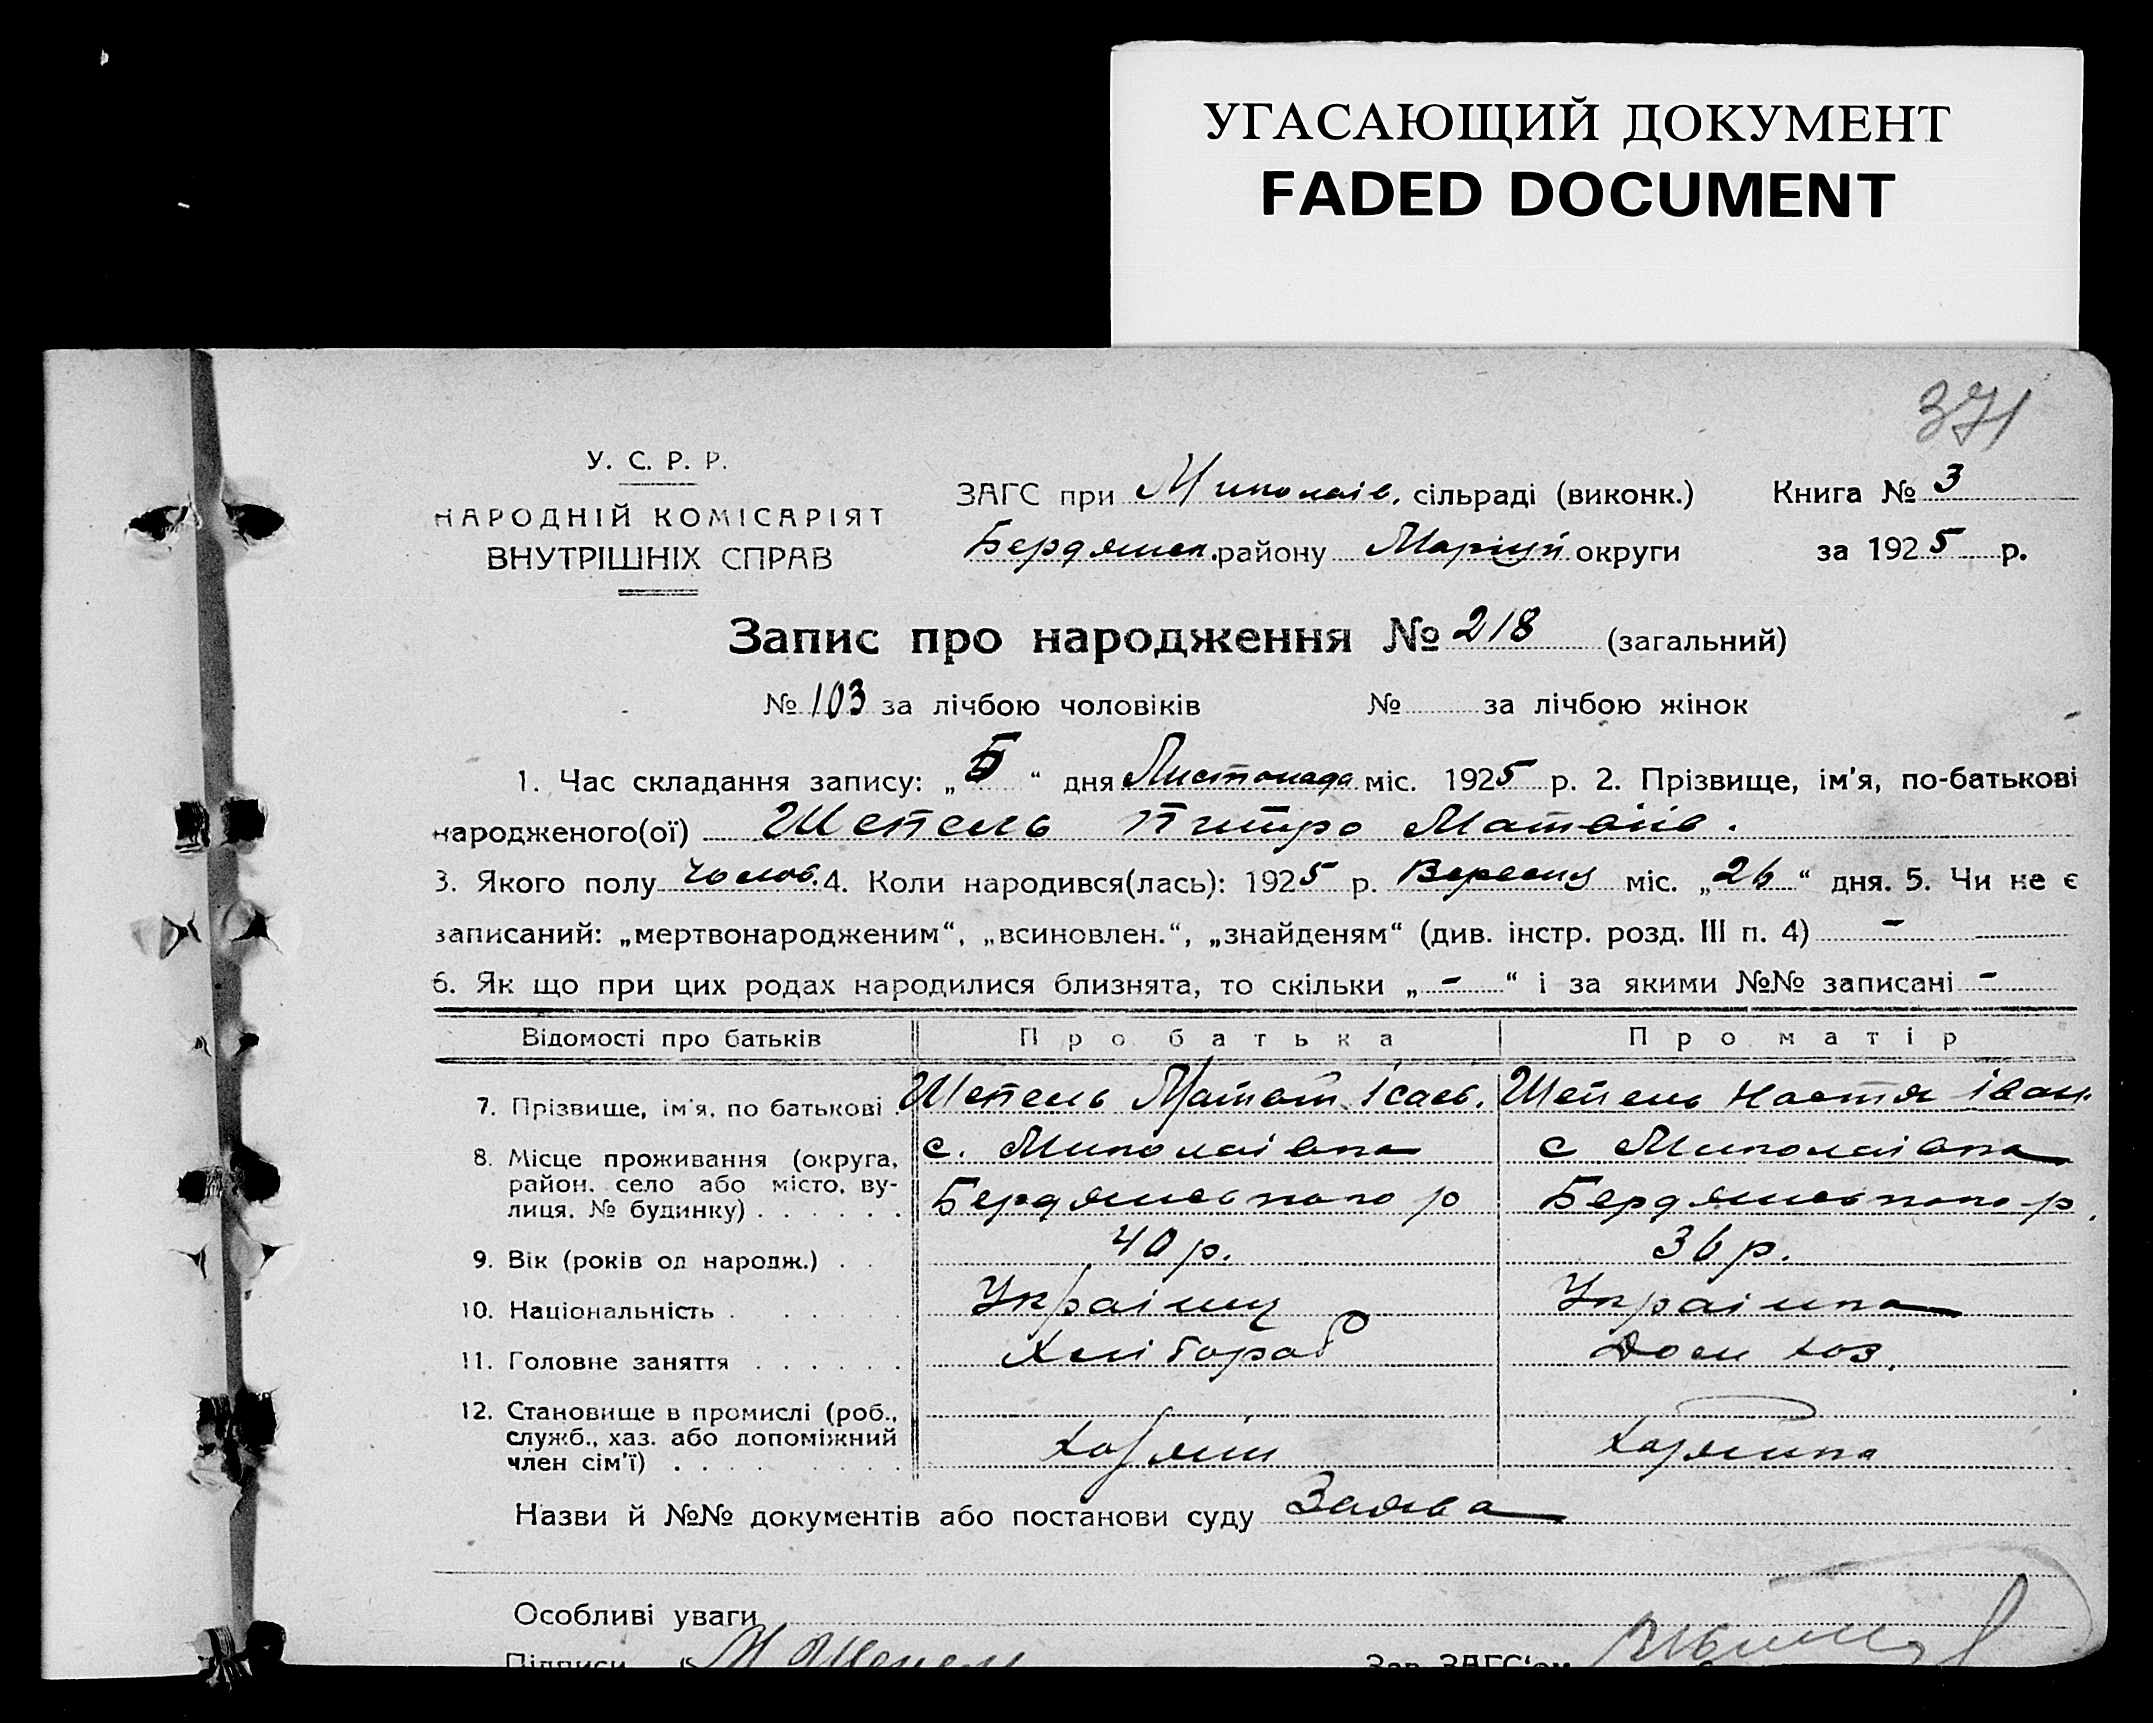 УГАСАЮЩИЙ ДОКУМЕНТ
FADED DOCUMENT
371
У. С. Р. Р.
НАРОДНІЙ КОМІСАРІЯТ
ВНУТРІШНІХ СПРАВ
ЗАГС при Миколаїв. сільраді (виконк.) Книга № 3
Бердянськ. району Маріуп округи за 1925 р.
Запис про народження № 218 (загальний)
№ 103 за лічбою чоловіків № за лічбою жінок
1. Час складання запису: „5“ дня Листопада міс. 1925 р. 2. Прізвище, ім'я, по-батькові
народженого(ої) Шепель Питро Матвіїв.
3. Якого полу Чолов. 4. Коли народився(лась): 1925 р. Вересня міс. „26“ дня. 5. Чи не є
записаний: „мертвонародженим“, „всиновлен.“, „знайденям“ (див. інстр. розд. III п. 4) -
6. Як що при цих родах народилися близнята, то скільки „-“ і за якими №№ записані -
Відомості про батьків Про батька Про матір
7. Прізвище, ім'я, по батькові Шепель Матвій Ісаєв. Шепель Настя Іван.
8. Місце проживання (округа, с. Миколаівка с Миколаівка
район, село або місто, ву-
лиця, № будинку) . . . . . . Бердянського р Бердянського р.
9. Вік (років од народж.) . . 40 р. 36 р.
10. Національність . . . . . Українц Українка
11. Головне заняття . . . . . . Хлібороб Дом хоз.
12. Становище в промислі (роб.,
служб., хаз. або допоміжний
член сім'ї) . . . . . . . . Хазяїн Хазяйка
Назви й №№ документів або постанови суду Заява
Особливі уваги
Підписи М Шепель Зав. ЗАГС'ом